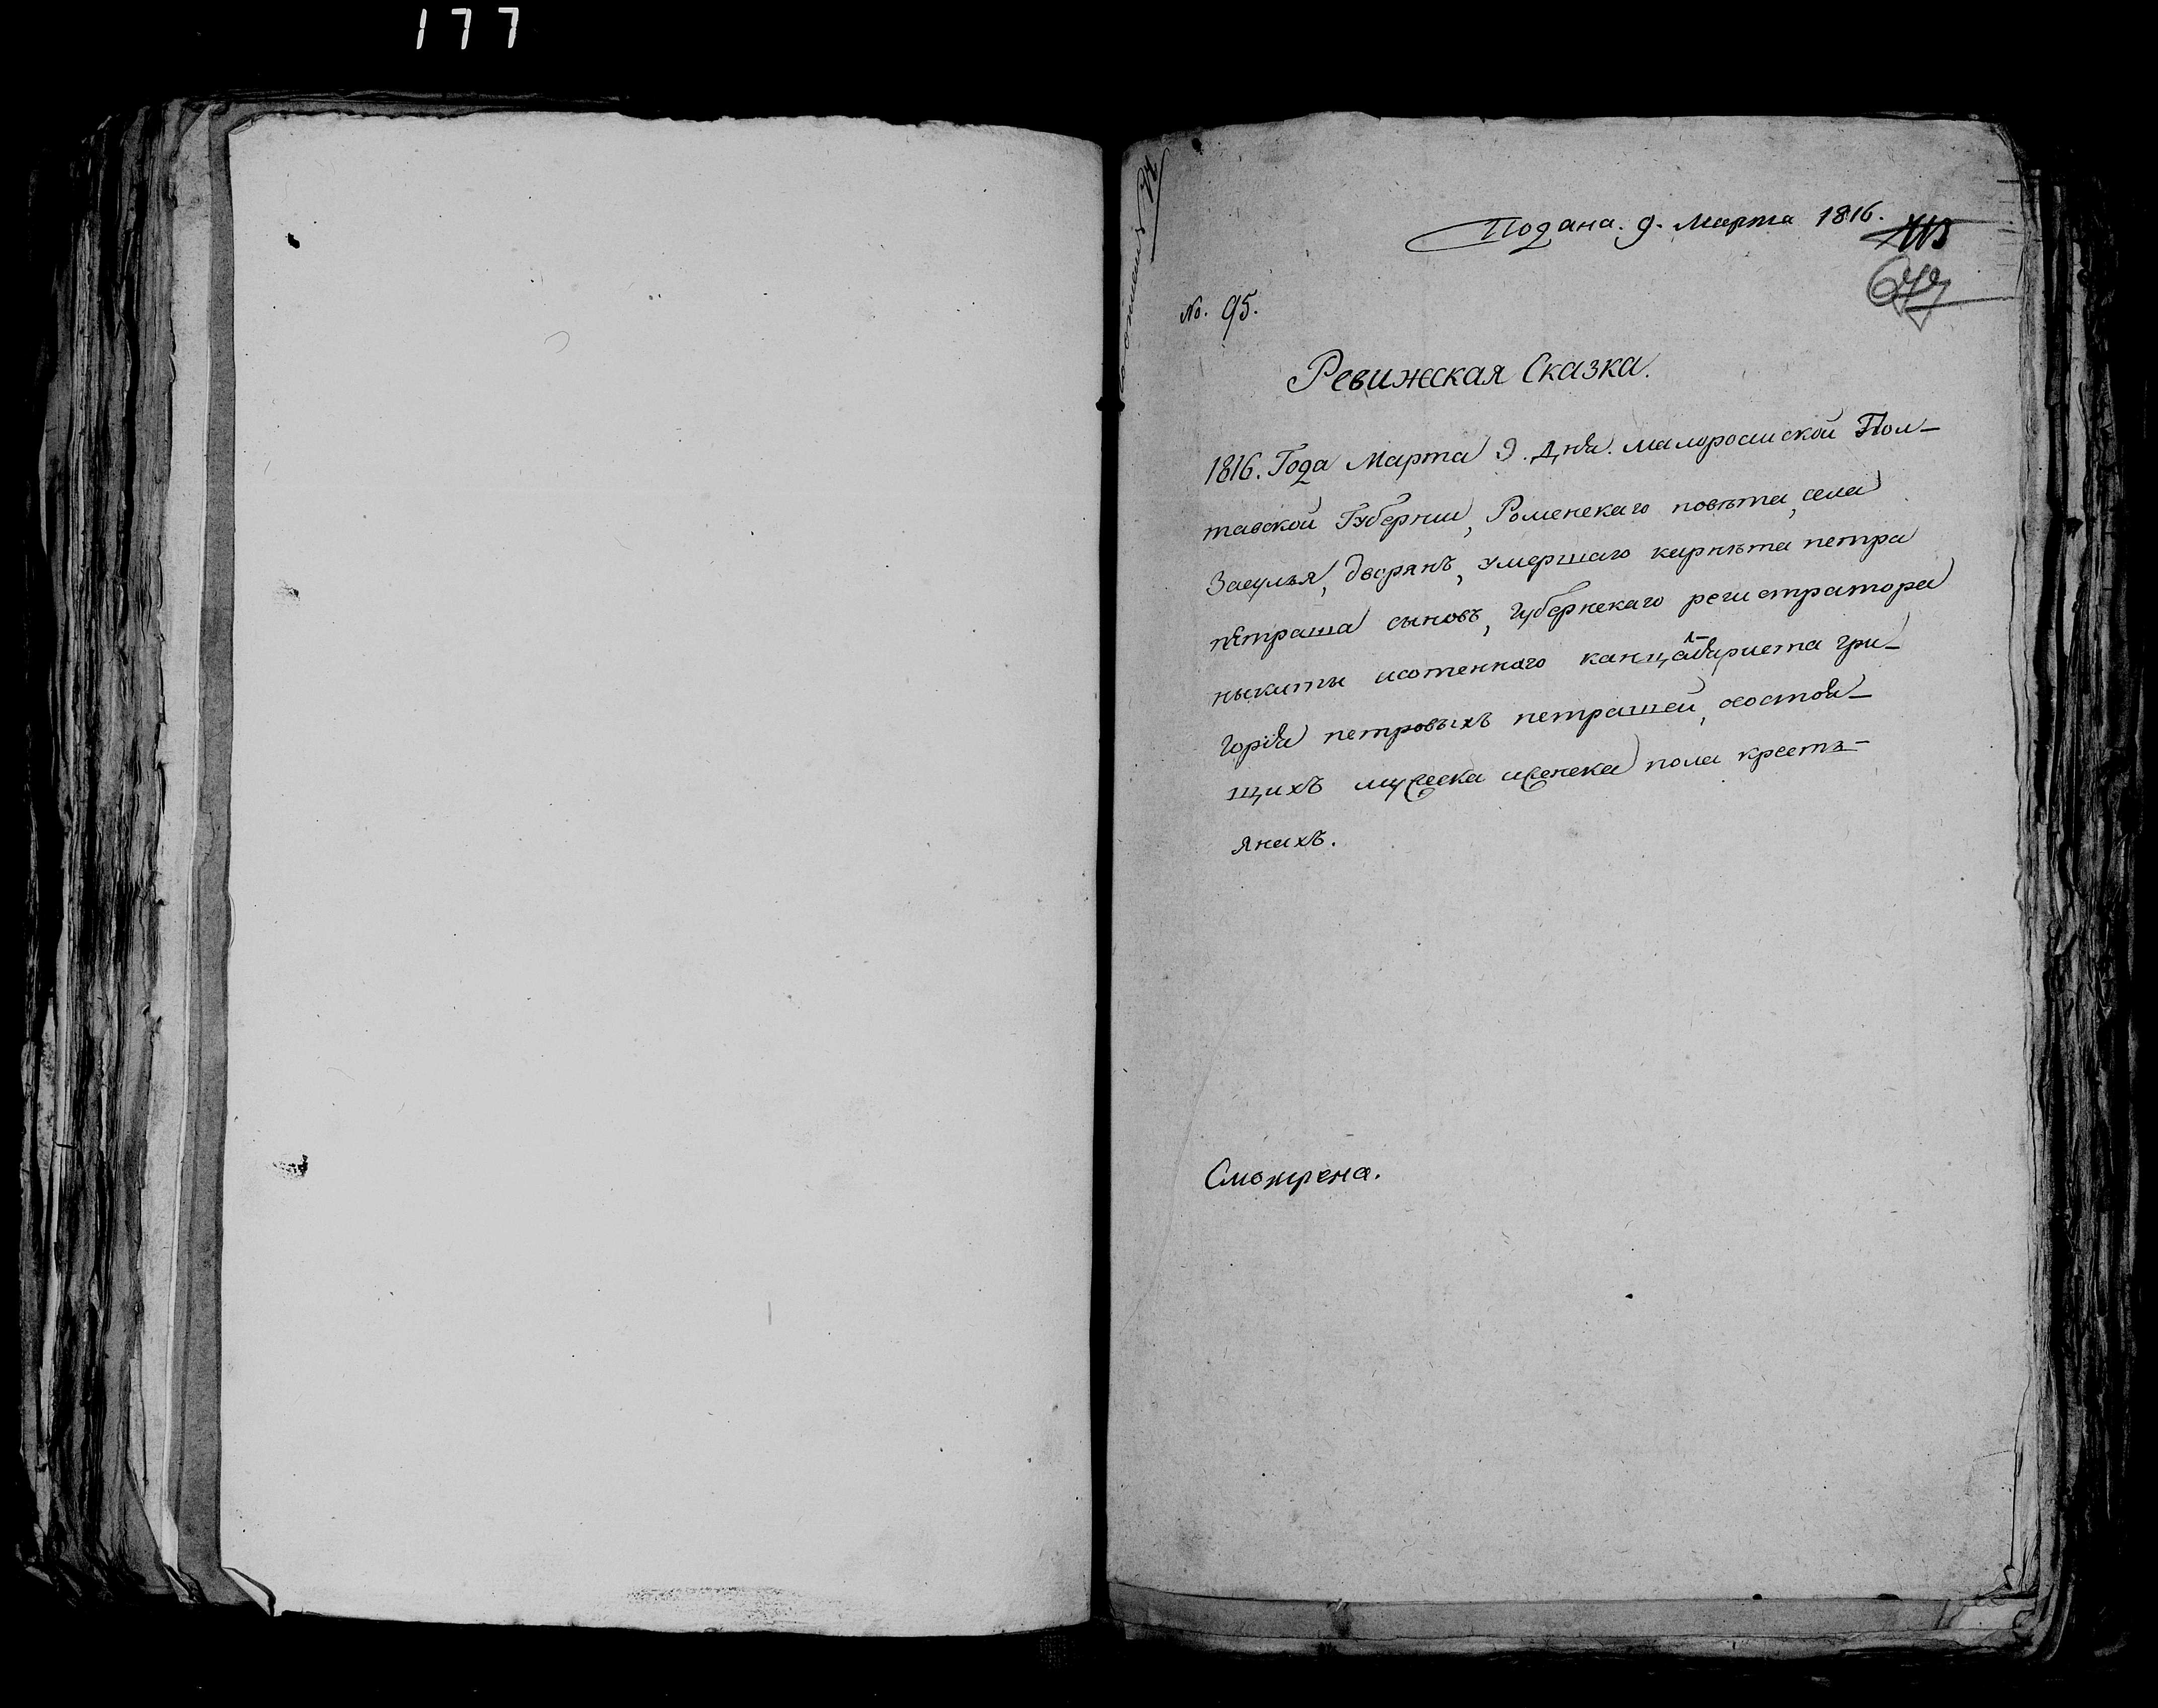 177
Подана. 9. Марта 1816.
No. 95.
Ревижская Сказка.
1816. Года Марта 9. Дня. малоросииской Пол-
тавской Губернии, Роменскаго повѣта, села
Засулья, дворянъ, умершаго карнѣта петра
петраша сыновъ, Губернскаго регистратора
ныкиты исотенного канцаляриста гри-
горія петровыхъ петрашей, осостоя-
щихъ мужеска иженска пола кресть-
янахъ.
Смотрена.